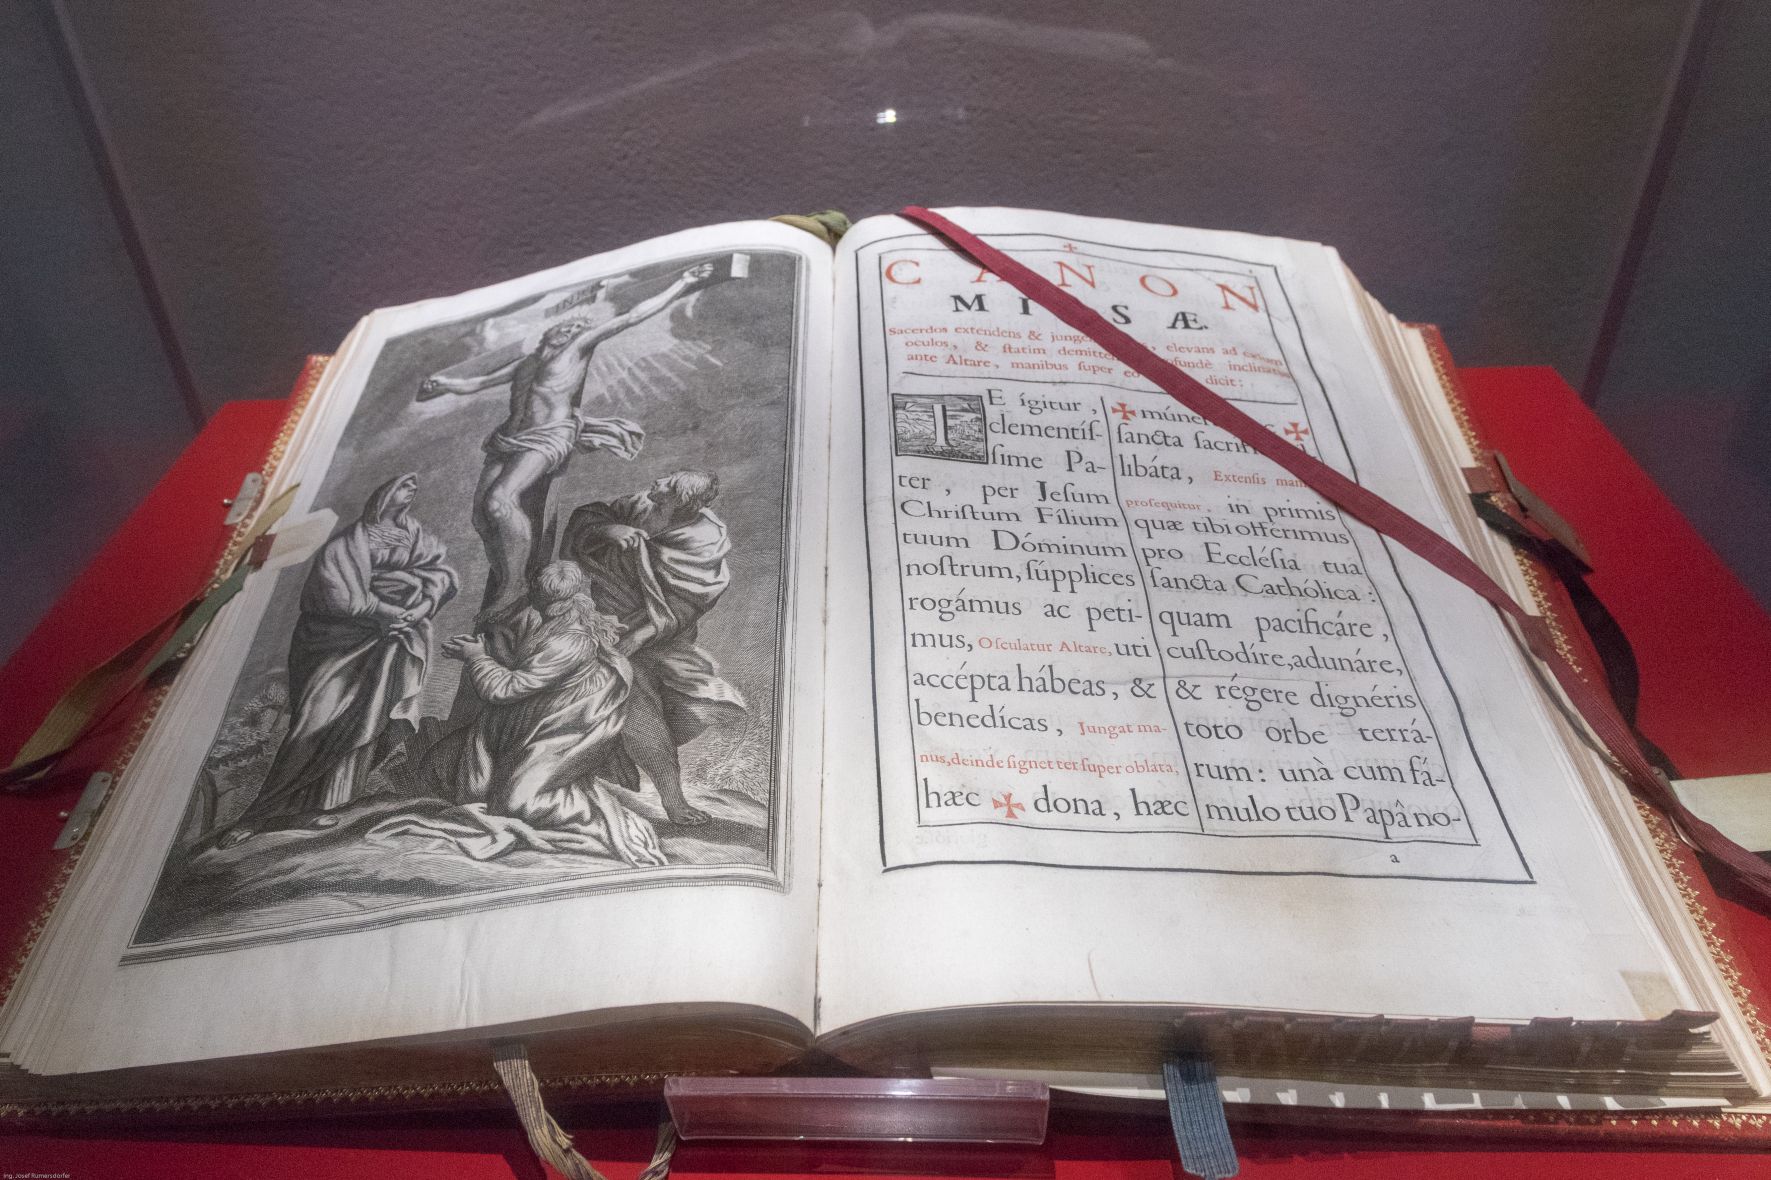 INRI
CANON
MISSÆ.
Sacerdos extendens & junge , elevans ad cœlum
oculos, & ſtatim demitte profundè inclinatus
ante Altare, manibus ſuper eo dicit:
TE ígitur,
clementíſ-
ſime Pa-
ter, per Jeſum
Chriſtum Fílium
tuum Dóminum
noſtrum, ſúpplices
rogámus ac peti-
mus, Oſculatur Altare, uti
accépta hábeas, &
benedícas, Jungat ma-
nus, deinde ſignet ter ſuper oblata,
hæc ✠ dona, hæc
✠ múne ✠
ſancta ſacrifí il
libáta, Extenſis man
proſequitur. in primis
quæ tibi offérimus
pro Eccléſia tua
ſancta Cathólica:
quam pacificáre,
cuſtodíre, adunáre,
& régere dignéris
toto orbe terrá-
rum: unà cum fá-
mulo tuo Papâ no-
a
Ing. Josef Rumersdorfer